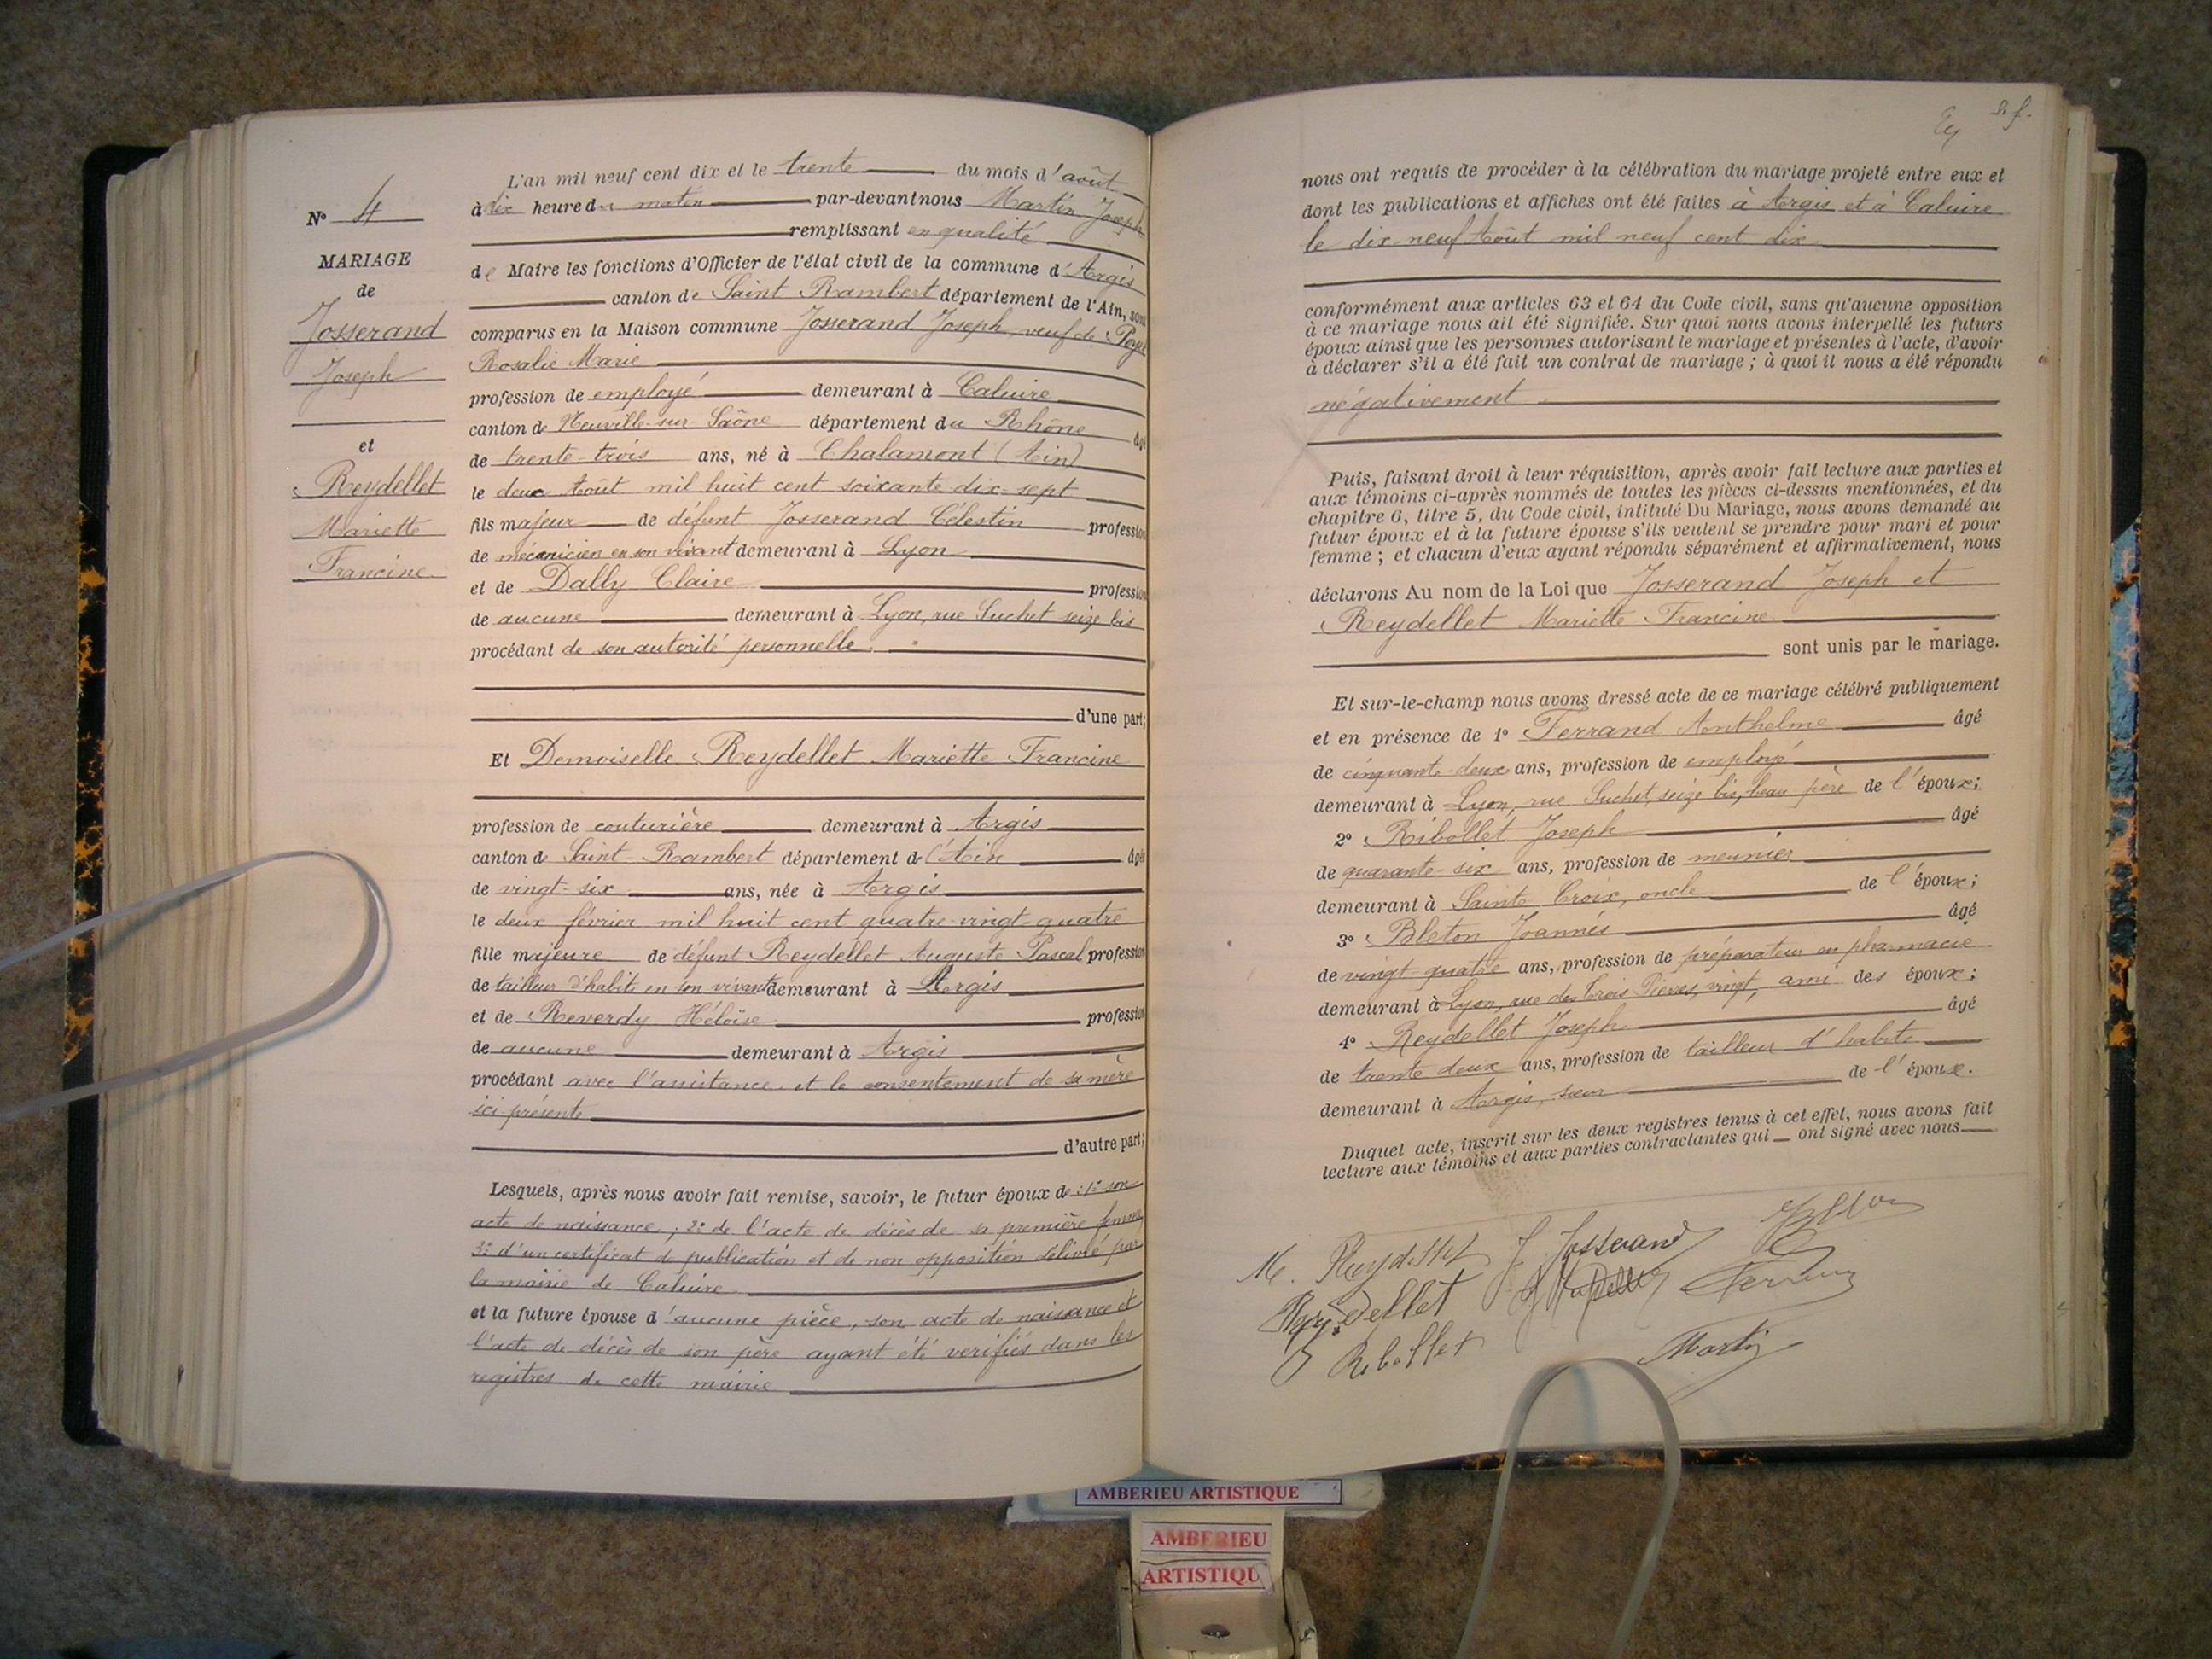 N° 4
MARIAGE
de
Josserand
Joseph
et
Reydellet
Mariette
Francine
L'an mil neuf cent dix et le trente du mois d'août
à dix heure du matin par-devant nous Martin Joseph
remplissant en qualité
de Maire les fonctions d'Officier de l'état civil de la commune d'Argis
canton de Saint Rambert département de l'Ain, sont
comparus en la Maison commune Josserand Joseph, veuf de
Rosalie Marie
profession de employé demeurant à Caluire
canton de Neuville-sur-Saône département du Rhône âgé
de trente-trois ans, né à Chalamont (Ain)
le deux Août mil huit cent soixante dix-sept
fils majeur de défunt Josserand Célestin profession
de mécanicien en son vivant demeurant à Lyon
et de Dally Claire profession
de aucune demeurant à Lyon, rue Suchet seize bis
procédant de son autorité personnelle
d'une part;
Et Demoiselle Reydellet Mariette Francine
profession de couturière demeurant à Argis
canton de Saint-Rambert département de l'Ain âgée
de vingt-six ans, née à Argis
le deux février mil huit cent quatre-vingt-quatre
fille majeure de défunt Reydellet Auguste Pascal profession
de tailleur d'habits en son vivant demeurant à Argis
et de Reverdy Héloïse profession
de aucune demeurant à Argis
procédant avec l'assistance et le consentement de sa mère
ici présente
d'autre part;
Lesquels, après nous avoir fait remise, savoir, le futur époux de : 1° son
acte de naissance ; 2° de l'acte de décès de sa première femme
3° d'un certificat de publication et de non opposition délivré par
la mairie de Caluire
et la future épouse d'aucune pièce, son acte de naissance et
l'acte de décès de son père ayant été verifiés dans les
registres de cette mairie
nous ont requis de procéder à la célébration du mariage projeté entre eux et
dont les publications et affiches ont été faites à Argis et à Caluire
le dix-neuf Août mil neuf cent dix
conformément aux articles 63 et 64 du Code civil, sans qu'aucune opposition
à ce mariage nous ait été signifiée. Sur quoi nous avons interpellé les futurs
époux ainsi que les personnes autorisant le mariage et présentes à l'acte, d'avoir
à déclarer s'il a été fait un contrat de mariage ; à quoi il nous a été répondu
négativement
Puis, faisant droit à leur réquisition, après avoir fait lecture aux parties et
aux témoins ci-après nommés de toutes les pièces ci-dessus mentionnées, et du
chapitre 6, titre 5, du Code civil, intitulé Du Mariage, nous avons demandé au
futur époux et à la future épouse s'ils veulent se prendre pour mari et pour
femme ; et chacun d'eux ayant répondu séparément et affirmativement, nous
déclarons Au nom de la Loi que Josserand Joseph et
Reydellet Mariette Francine
sont unis par le mariage.
Et sur-le-champ nous avons dressé acte de ce mariage célébré publiquement
et en présence de 1° Ferrand Anthelme âgé
de cinquante-deux ans, profession de employé
demeurant à Lyon, rue Suchet, seize bis, beau père de l'époux;
2° Ribollet Joseph âgé
de quarante-six ans, profession de meunier
demeurant à Sainte Croix, oncle de l'époux;
3° Bleton Joannés âgé
de vingt-quatre ans, profession de préparateur en pharmacie
demeurant à Lyon, rue des Trois Pierres, vingt, ami des époux;
4° Reydellet Joseph âgé
de trente deux ans, profession de tailleur d'habits
demeurant à Argis, de l'épouse.
Duquel acte, inscrit sur les deux registres tenus à cet effet, nous avons fait
lecture aux témoins et aux parties contractantes qui ont signé avec nous
M. Reydellet J. Josserand
Reydellet
Ribollet Martin
AMBERIEU ARTISTIQUE
AMBERIEU
ARTISTIQU